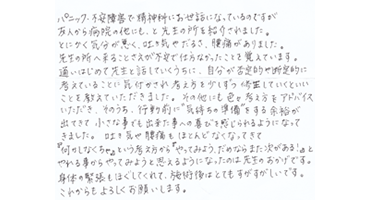 パニック、不安障害で精神科にお世話になっているのですが
友人から病院の他にも、と先生の所を紹介されました。
とにかく気分が悪く、吐き気やだるさ、腰痛がありました。
先生の所へ来ることさえが不安で仕方なかったことを覚えています。
通いはじめて先生と話していくうちに、自分が否定的や断定的に
考えていることに気付かされ考え方を少しずつ修整していくといい
ことを教えていただきました。その他にも色々考え方をアドバイス
いただき、そのうち、行動前に"気持ちの準備"をする余裕が
出てきて 小さな事でも出来た事への喜びを感じられるようになって
きました。 吐き気や腰痛もほとんどなくなってきて
『何かしなくちゃ』という考え方から『やってみよう、だめならまた次がある!』と
やれる事からやってみようと思えるようになったのは先生のおかげです。
身体の緊張もほぐしてくれて、施術後はとてもすがすがしいです。
これからもよろしくお願いします。